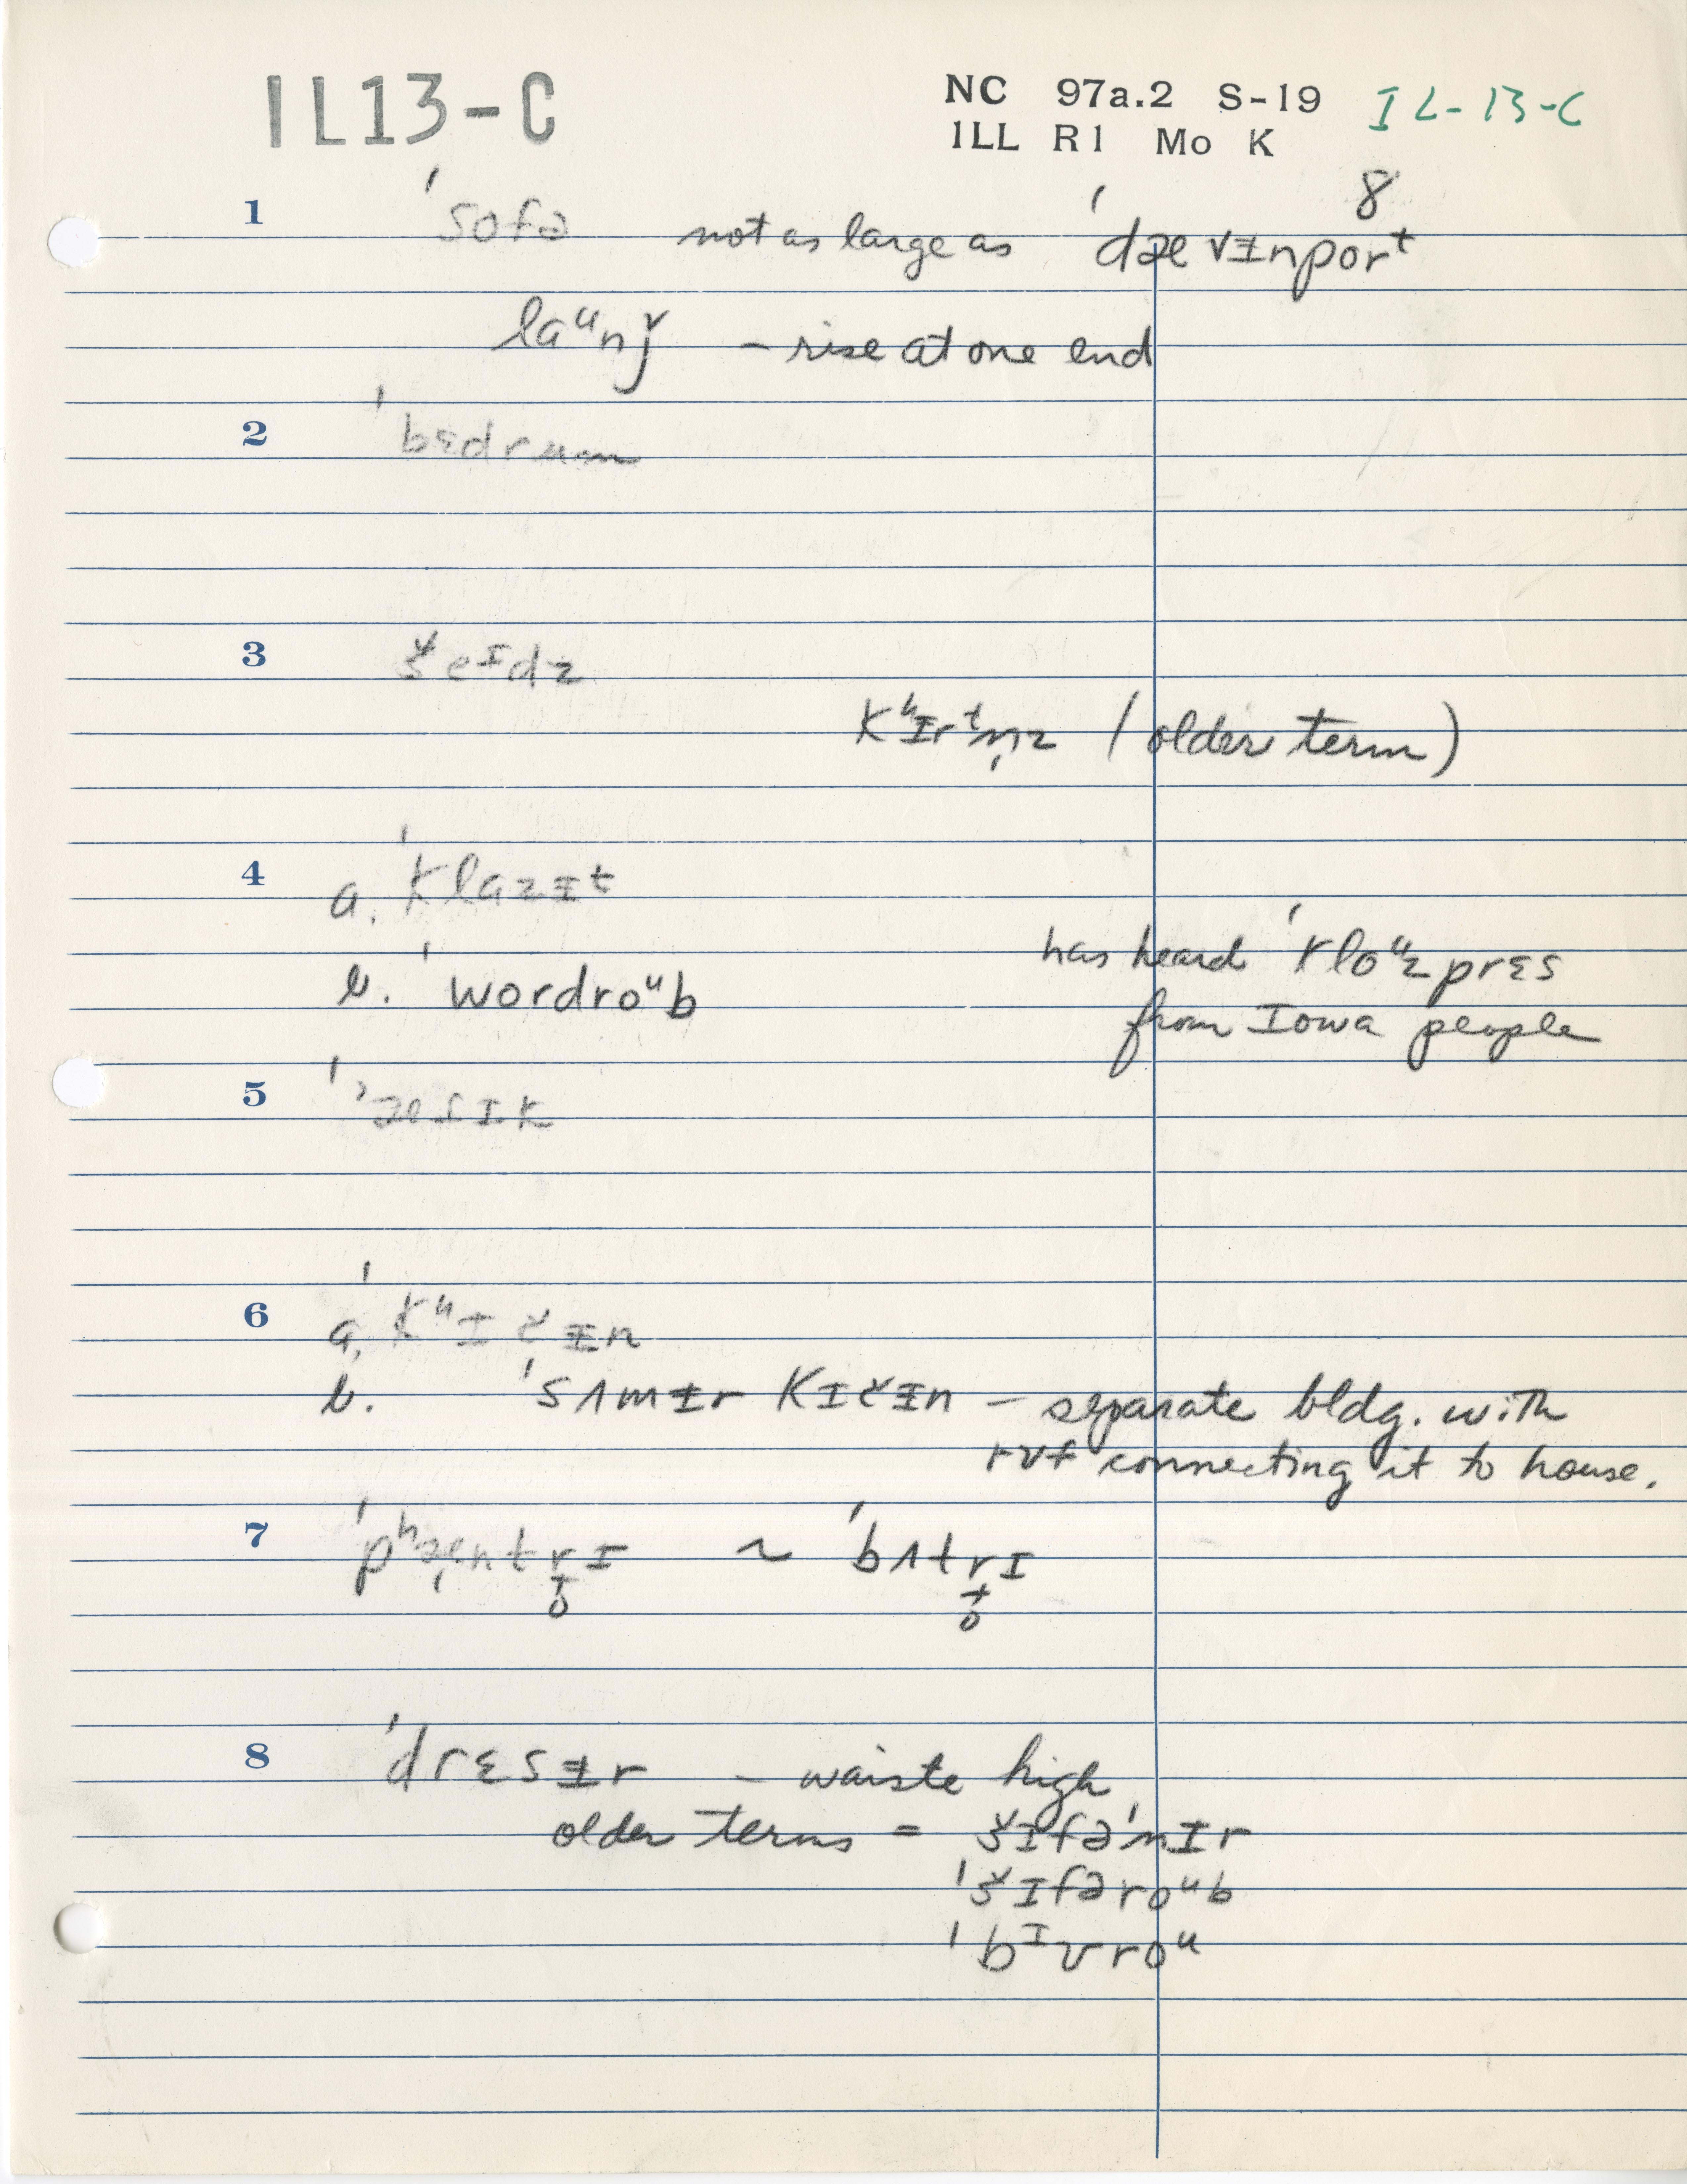 IL13-C
NC 97a.2 S-19 IL-13-C
ILL R1 Mo K
8
1 ˈsofə not as large as ˈdævᵻnporᵗ
laᵘnǰ – rise at one end
2 ˈbɛdrum
3 šeᴵdz
Kʰᵻrᵗn̩z (older term)
4 a. ˈKlazᵻt
b. ˈwordroᵘb
has heard ˈkloᵘz prɛs
from Iowa people
5 ˈæsɪk
6 a. ˈKʰɪčᵻn
b. ˈsʌmᵻr Kɪčᵻn – separate bldg. with
rvf connecting it to house.
7 ˈpʰæntrɪ ~ ˈbʌtrɪ
8 ˈdrɛsᵻr – waiste high
older terms = šɪfəˈnɪr
ˈšɪfəroᵘb
ˈbᴵvroᵘ